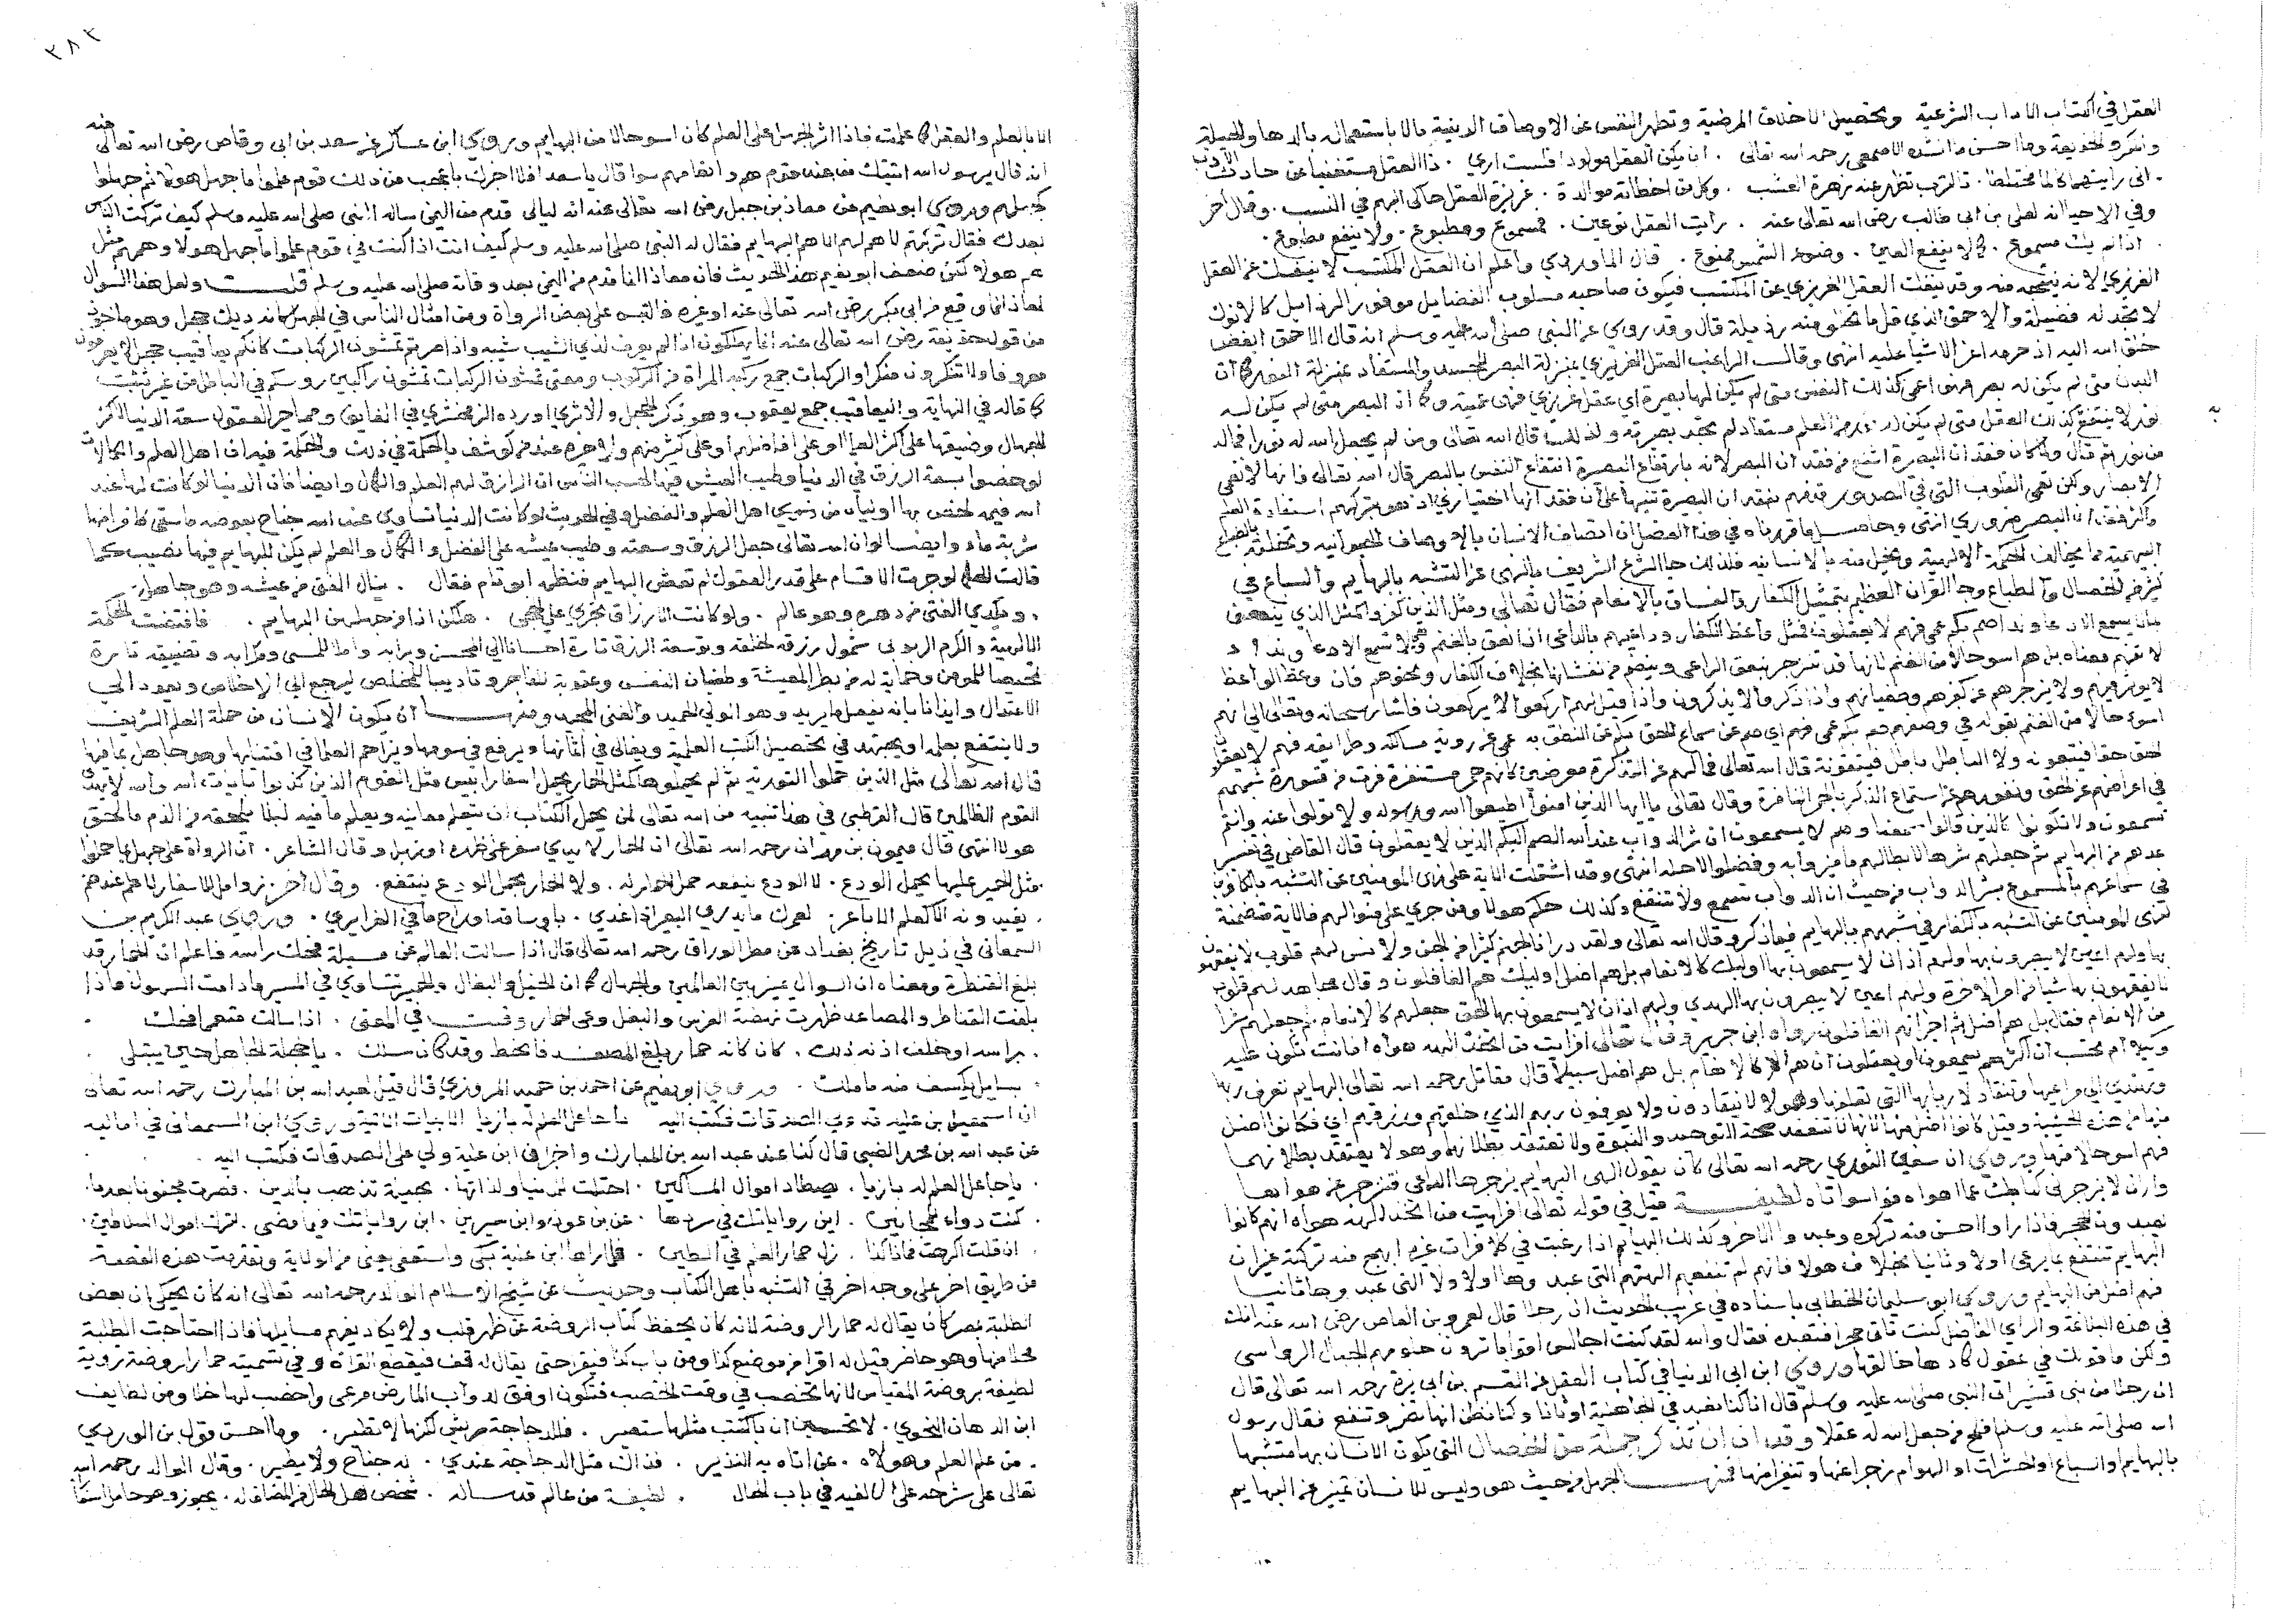 العقل في اكتساب الاداب الشرعية وبتحصيل الاخلاق المرضية وتطهر النفس عن الاوصاف الدنية لا باستعماله بالدها والحيلة
والمكر والخديعة وما احسن ما انشده الاصمعي رحمه الله تعالى . ان يكن العقل مولودا فلست ارى . ذا العقل مستغنيا عن حادث الادب
. انى رايتهما كالما مختلطا . تظهر عنه زهرة العشب . وكل من اخطاته موالده . غريزة العقل حاكى البهم في النسب . وقال اخر
وفي الاحيا انه لعلى بن ابى طالب رضى الله تعالى عنه . رايت العقل نوعين . فمسموع ومطبوع . ولا ينفع مطبوع .
. اذا لم يك مسموع . كما لا ينفع العين . وضوء الشمس ممنوع . قال الماوردي واعلم ان العقل المكتسب لا ينفك عن العقل
الغريزي لانه نتيجة منه وقد ينفك العقل الغريزي عن المكتسب فيكون صاحبه مسلوب الفضايل موفور الرذايل كالانوك
لا يجد له فضيلة والاحمق الذي قل ما يخلو منه رذيلة قال وقد روى عن النبي صلى الله عليه وسلم انه قال الاحمق ابغض
خلق الله اليه اذ حرمه اعز الاشيا عليه انتهى وقال الراغب العقل الغريزي بمنزلة البصر للجسد والمستفاد بمنزلة النور كما ان
البدن متى لم يكن له بصر فهو اعمى كذلك النفس متى لم يكن لها بصيرة اى عقل غريزي فهى عمية وكما ان البصر متى لم يكن له
نور لا ينتفع كذلك العقل متى لم يكن له نور من العلم مستفاد لم تجد بصيرته ولذلك قال الله تعالى ومن لم يجعل الله له نورا فما له
من نور ثم قال ولما كان فقدان البصيرة اشنع من فقدان البصر لانه بارتفاع البصيرة انتفاع النفس بالبصر قال الله تعالى فانها لا تعمى
الابصار ولكن تعمى القلوب التي في الصدور فذمهم بفقدان البصيرة تنبيها على ان فقدانها اختياري اذ هو بتركهم استفادة العلم
واكثر فقدان البصر ضروري انتهى وحاصل ما قررناه في هذا الفصل ان اتصاف الانسان بالاوصاف الحيوانية وتخلقه بالطباع
البهيمية مما يخالف الحكمة الالهية ويخل منه بالانسانية فلذلك جا الشرع الشريف بالنهى عن التشبه بالبهايم والسباع في
كثير من الخصال والطباع وجا القران العظيم بتمثيل الكفار والفساق بالانعام فقال تعالى ومثل الذين كفروا كمثل الذي ينعق
بما لا يسمع الا دعا وندا صم بكم عمى فهم لا يعقلون فمثل واعظ الكفار وداعيهم بالراعى الذى ينعق بالغنم وهى لا تسمع الا دعا وندا
لا تفهم معناه بل هم اسو حالا من الغنم لانها قد تنزجر بنعق الراعى وينضم من تفشانها بخلاف الكفار ونحوهم فان وعظ الواعظ
لا يوثر فيهم ولا يزجرهم عن كفرهم وعصيانهم واذا ذكروا لا يذكرون واذا قيل لهم اركعوا لا يركعون فاشار سبحانه وتعالى الى انهم
اسوء حالا من الغنم بقوله في وصفهم صم بكم عمى فهم اى صم عن سماع الحق بكم عن النطق به عمى عن روية مسالكه وطرايقه فهم لا يعقلون
الحق حقا فيتبعونه ولا الباطل باطلا فيتقونه قال الله تعالى فما لهم عن التذكرة معرضين كانهم حمر مستنفرة فرت من قسورة شبههم
في اعراضهم عن الحق ونفورهم عن استماع الذكر بالحمر النافرة وقال تعالى يا ايها الذين امنوا اطيعوا الله ورسوله ولا تولوا عنه وانتم
تسمعون ولا تكونوا كالذين قالوا سمعنا وهم لا يسمعون ان شر الدواب عند الله الصم البكم الذين لا يعقلون قال القاضى في تفسيره
عدهم من البهايم ثم جعلهم شرها لابطالهم ما ميزوا به وفضلوا لاجله انتهى وقد اشتملت الاية على نهى المومنين عن التشبه بالكافرين
في سماعهم بالمسموع بشر الدواب من حيث ان الدواب تسمع ولا تنتفع وكذلك حكم هولا ومن جرى على منوالهم فالاية متضمنة
لنهى المومنين عن التشبه بالكفار في شبههم بالبهايم فيما ذكر وقال الله تعالى ولقد ذرانا لجهنم كثيرا من الجن والانس لهم قلوب لا يفقهون
بها ولهم اعين لا يبصرون بها ولهم اذان لا يسمعون بها اوليك كالانعام بل هم اضل اوليك هم الغافلون وقال مجاهد لهم قلوب
لا يفقهون بها شيا من امر الاخرة ولهم اعين لا يبصرون بها الهدى ولهم اذان لا يسمعون بها الحق جعلهم كالانعام ثم جعلهم شرا
من الانعام فقال بل هم اضل ثم اخبر انهم الغافلون رواه ابن جرير وقال تعالى افرايت من اتخذ الهه هواه افانت تكون عليه
وكيلا ام تحسب ان اكثرهم يسمعون او يعقلون ان هم الا كالانعام بل هم اضل سبيلا قال مقاتل رحمه الله تعالى البهايم تعرف ربها
وتهتدي الى مراعيها وتنقاد لاربابها التى تعلفها وهولا لا ينقادون ولا يعرفون ربهم الذي خلقهم ورزقهم اى فكانوا اضل
منها من هذه الحيثية وقيل كانوا اضل منها لانها لا تعتقد صحة التوحيد والنبوة ولا تعتقد بطلانهما وهولا يعتقد بطلانهما
فهم اسو حالا منها وروى ان سفين الثوري رحمه الله تعالى كان يقول الهى البهايم يزجرها الراعى فتنزجر عن هواها
وارانى لا يزجرنى كتابك عما اهواه فواسواتاه لطيفة قيل في قوله تعالى افرايت من اتخذ الهه هواه انهم كانوا
يعبدون الحجر فاذا راوا احسن منه تركوه وعبدوا الاخر وكذلك البهايم اذا رغبت في كلا فرات غيره ابهج منه تركته غير ان
البهايم تنتفع بما ترعى اولا وثانيا بخلاف هولا فانهم لم تنفعهم الهتهم التى عبدوها اولا ولا التى عبدوها ثانيا
فهم اضل من البهايم وروى ابو سليمان الخطابى باسناده في غريب الحديث ان رجلا قال لعمرو بن العاص رضى الله عنه انك
في هذه البلاغة والراي الفاضل كنت تاتى حجرا فتعبده فقال والله لقد كنت اجالس اقواما ترون حلومهم الجبال الرواسى
ولكن ما قولك في عقول كادها خالقها وروى ابن ابى الدنيا في كتاب العقل عن القسم بن ابى بزة رحمه الله تعالى قال
ان رجلا من بنى قشير اتى النبي صلى الله عليه وسلم قال انا كنا نعبد في الجاهلية اوثانا وكنا نظن انها تضر وتنفع فقال رسول
الله صلى الله عليه وسلم افلح من جعل الله له عقلا وقد ان ان نذكر جملة من الخصال التى يكون الانسان بها متشبها
بالبهايم والسباع او الحشرات او الهوام زجرا عنها وتنفيرا منها فمنها الجهل من حيث هو وليس للانسان تميز عن البهايم
٣٨٣
الا بالعلم والعقل كما علمت فاذا اثر الجهل على العلم كان اسو حالا من البهايم وروى ابن عساكر عن سعد بن ابى وقاص رضى الله تعالى عنه
انه قال يرسول الله اتيتك من عند قوم هم وانعامهم سوا قال يا سعد افلا اخبرك باعجب من ذلك قوم علموا ما جهل هولا ثم جهلوا
كجهلهم وروى ابو نعيم عن معاذ بن جبل رضى الله تعالى عنه انه ليالى قدم من اليمن ساله النبي صلى الله عليه وسلم كيف تركت الناس
بعدك فقال تركتهم لا هم لهم الا هم البهايم فقال له النبي صلى الله عليه وسلم كيف انت اذا كنت في قوم علموا ما جهل هولا وهمهم مثل
هم هولا لكن ضعف ابو نعيم هذا الحديث فان معاذ انما قدم من اليمن بعد وفاته صلى الله عليه وسلم قلت ولعل هذا السوال
لمعاذ انما وقع من ابى بكر رضى الله تعالى عنه او غيره فالتبس على بعض الرواة ومن امثال الناس في الجهل كانه ديك حجل وهو ماخوذ
من قول حذيفة رضى الله تعالى عنه انما تهلكون اذا لم يعرف لذي الشيب شيبه واذا صرتم تمشون الركبات كانكم يعاقيب حجل لا تعرفون
معروفا ولا تنكرون منكرا والركبات جمع ركبة المراة من الركوب ومعنى تمشون الركبات تمشون راكبين روسكم في الباطل من غير تثبت
كما قاله في النهاية واليعاقيب جمع يعقوب وهو ذكر الحجل والاثر اورده الزمخشري في الفايق ومما حير العقول سعة الدنيا لاكثر
الجهال وضيقها على اكثر العلما او على افاضلهم او على كثير منهم ولا حيرة عند من كوشف بالحكمة في ذلك والحكمة فيه ان اهل العلم والكمالات
لو خصوا بسعة الرزق في الدنيا وطيب العيش فيها لحسب الناس ان الرازق لهم العلم والكمال وايضا فان الدنيا لو كانت لها عند
الله قيمة لخص بها اولياه من ذوي اهل العلم والفضل وفي الحديث لو كانت الدنيا تساوي عند الله جناح بعوضه ما سقى كافرا منها
شربة ماء وايضا لو ان الله تعالى جعل الرزق وسعته وطيب عيشه على الفضل والكمال والعلم لم يكن للبهايم فيها نصيب كما
قالت العلما لو جرت الاقسام على قدر العقول لم تعش البهايم فنظمه ابو تمام فقال . ينال الفتى من عيشه وهو جاهل .
. ويكدي الفتى من دهره وهو عالم . ولو كانت الارزاق تجري على الحجى . هلكن اذا من جهلهن البهايم . فاقتضت الحكمة
الالهية والكرم الربوبى شمول رزقه لخلقه وتوسعة الرزق تارة احسانا الى المحسن وبرا به واملا للمسى ومكرا به وتضييقه تارة
تمحيصا للمومن وحماية له من بطر المعيشة وطغيان النفس وعقوبة للفاجر وتاديبا للمخلص ليرجع الى الاخلاص ويعود الى
الاعتدال وايذانا بانه يفعل ما يريد وهو الولى الحميد والغنى المجيد ومنها ان يكون الانسان من حملة العلم الشريف
ولا ينتفع بعلمه او يجتهد في تحصيل الكتب العلمية ويغالى في اثمانها ويرفع في سومها ويزاحم العلما في اقتنايها وهو جاهل بما فيها
قال الله تعالى مثل الذين حملوا التورية ثم لم يحملوها كمثل الحمار يحمل اسفارا بيس مثل القوم الذين كذبوا بايات الله والله لا يهدي
القوم الظالمين قال القرطبى في هذا تنبيه من الله تعالى لمن يحمل الكتاب ان يتعلم معانيه ويعلم ما فيه ليلا يلحقه من الذم ما لحق
هولا انتهى قال ميمون بن مهران رحمه الله تعالى ان الحمار لا يدري سفر على ظهره او زبل وقال الشاعر . ان الرواة على جهل بما حملوا
. مثل الحمير عليها يحمل الودع . لا الودع ينفعه حمل الحمار له . ولا الحمار بحمل الودع ينتفع . وقال اخر . زوامل للاسفار لا علم عندهم
. يفيدونه الا كعلم الاباعر . لعمرك ما يدري البعير اذا غدى . باوساقه او راح ما في الغراير . وروى عبد الكريم بن
السمعانى في ذيل تاريخ بغداد عن مطر الوراق رحمه الله تعالى قال اذا سالت العالم عن مسيلة فحك راسه فاعلم ان الحمار قد
بلغ القنطرة ومعناه ان السوال يميز بين العالمين والجهال كما ان الخيل والبغال والحمير تتساوي في المسير ما دامت السهول فاذا
بلغت القناطر والمصاعد ظهرت نهضة الفرس والبغل وعى الحمار وقلت في المعنى . اذا سالت متعمرا فحك .
. براسه او حلف اذنه ذلك . كان كانه حمار بلغ المصعد فانحط وقد كان سلك . يا خجلة الجاهل حين يبتلى .
. بسايل يكشف منه ما ملك . وروى ابو نعيم عن احمد بن حميد المروزي قال قيل لعبد الله بن المبارك رحمه الله تعالى
ان اسمعيل بن علية قد ولى الصدقات فكتب اليه يا جاعل العلم له بازيا الابيات الاتية وروى ابن السمعانى في اماليه
عن عبد الله بن محمد الضبى قال كنا عند عبد الله بن المبارك واخبر ان ابن علية ولى على الصدقات فكتب اليه .
. يا جاعل العلم له بازيا . يصطاد اموال المساكين . احتلت للدنيا ولذاتها . بحيلة تذهب بالدين . فصرت مجنونا بعدما .
. كنت دواء للمجانين . اين رواياتك في سردها . عن بن عون وابن سيرين . اين رواياتك فيما مضى . لترك اموال السلاطين .
. ان قلت اكرهت فماذا كذا . زل حمار العلم في الطين . فلما راها ابن علية بكى واستعفى يعنى من الولاية وتقدمت هذه القصة
من طريق اخر على وجه اخر في التشبه باهل الكتاب وحديث عن شيخ الاسلام الوالد رحمه الله تعالى انه كان يحكى ان بعض
الطلبة بمصر كان يقال له حمار الروضة لانه كان يحفظ كتاب الروضة عن ظهر قلب ولا يكاد يفهم مسايلها فاذا احتاجت الطلبة
محلا منها وهو حاضر قيل له اقرا من موضع كذا ومن باب كذا فيقرا حتى يقال له قف فيقطع القراة وفي تسميته حمار الروضة تورية
لطيفة بروضة المقياس لانها تخصب في وقت الخصب فتكون اوفق لدواب الارض مرعى واخصب لها خلا ومن لطايف
ابن الدهان النحوي . لا تحسبن ان بالكتب مثلنا ستصير . فللدجاجة ريش لكنها لا تطير . وما احسن قول بن الوردي
. من علم العلم وهو لاه . عن اتاه به النذير . فذاك مثل الدجاجة عندي . له جناح ولا يطير . وقال الوالد رحمه الله
تعالى على شرحه على الالفية في باب الحال . لطيفة من عالم قد ساله . شخص هل الحال من المضاف له . يجوز وهو حامل اسفارا